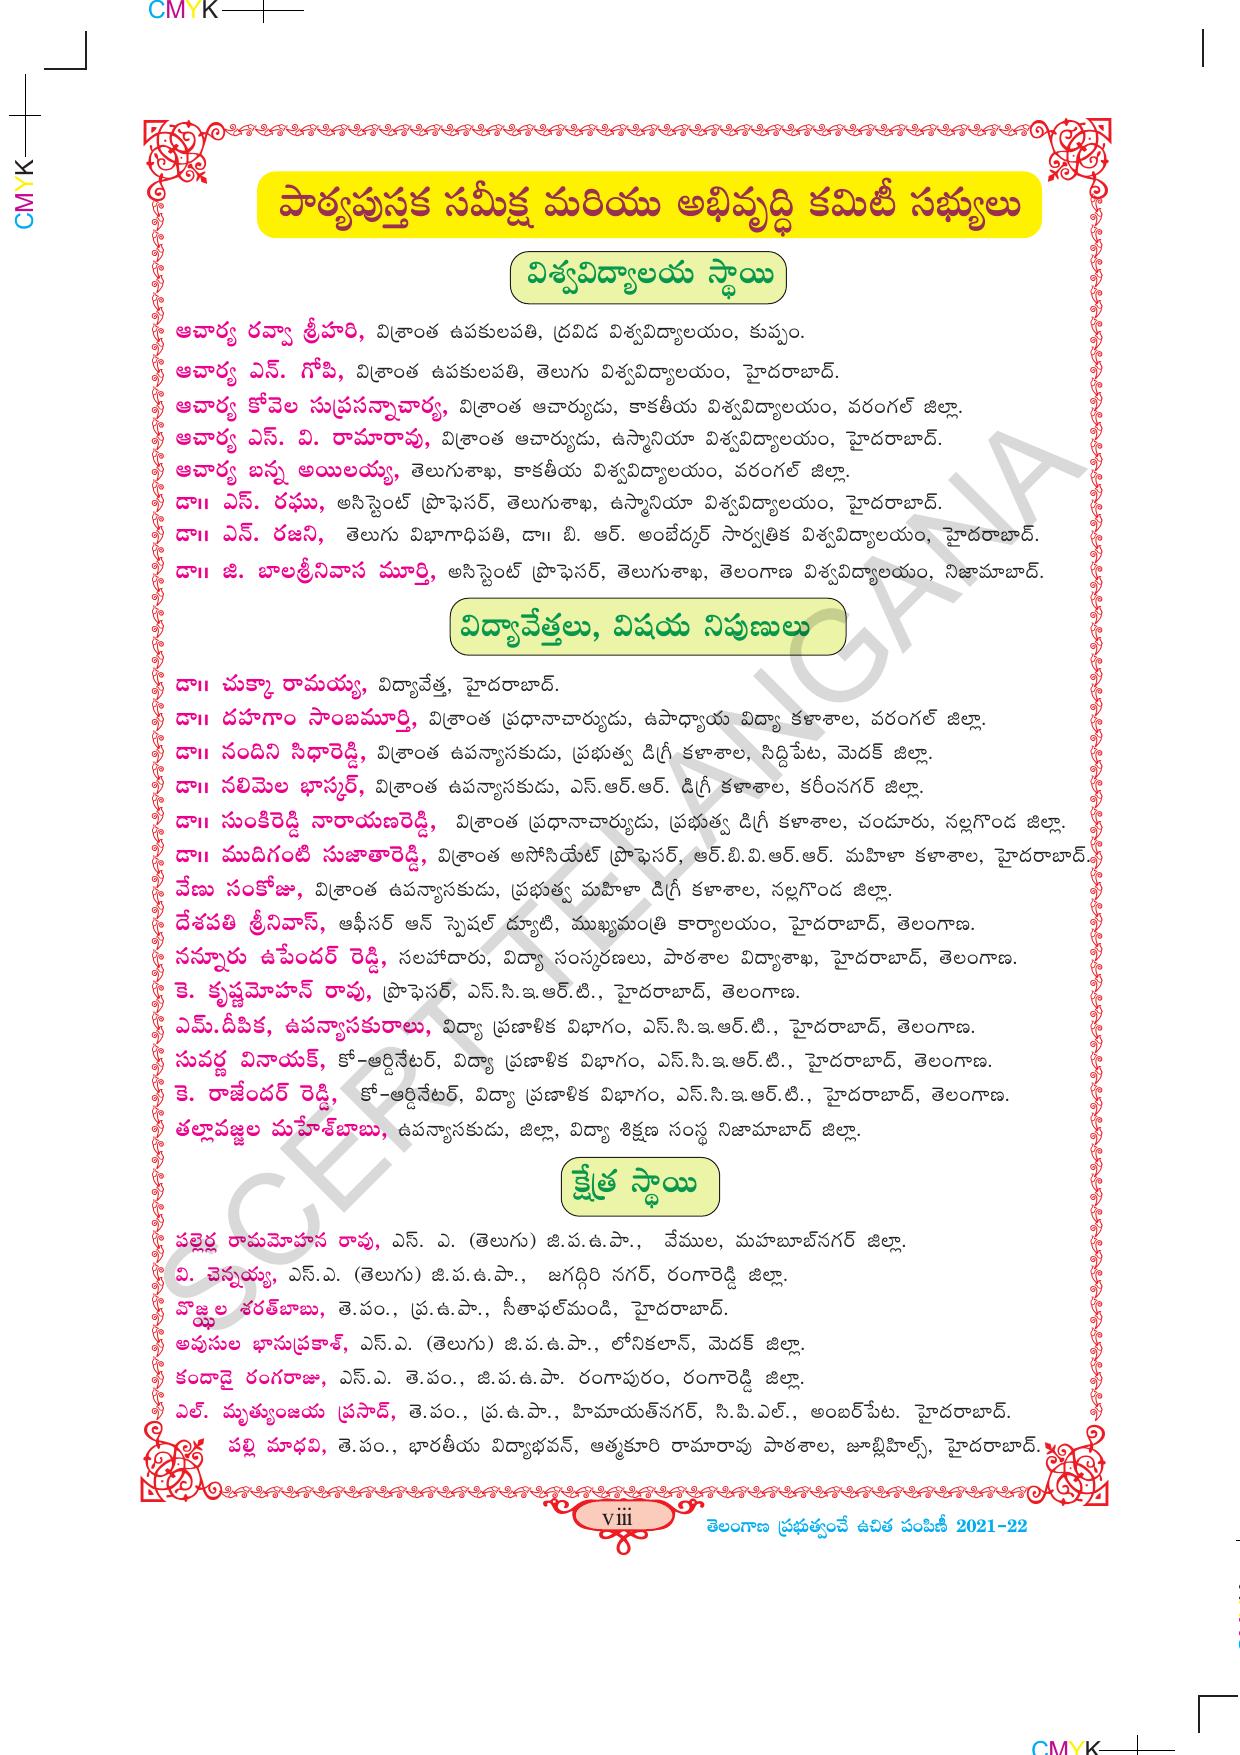 CMYK
CMYK
పాఠ్యపుస్తక సమీక్ష మరియు అభివృద్ధి కమిటీ సభ్యులు
విశ్వవిద్యాలయ స్థాయి
ఆచార్య రవ్వా శ్రీహరి, విశ్రాంత ఉపకులపతి, ద్రవిడ విశ్వవిద్యాలయం, కుప్పం.
ఆచార్య ఎన్. గోపి, విశ్రాంత ఉపకులపతి, తెలుగు విశ్వవిద్యాలయం, హైదరాబాద్.
ఆచార్య కోవెల సుప్రసన్నాచార్య, విశ్రాంత ఆచార్యుడు, కాకతీయ విశ్వవిద్యాలయం, వరంగల్ జిల్లా.
ఆచార్య ఎస్. వి. రామారావు, విశ్రాంత ఆచార్యుడు, ఉస్మానియా విశ్వవిద్యాలయం, హైదరాబాద్.
ఆచార్య బన్న అయిలయ్య, తెలుగుశాఖ, కాకతీయ విశ్వవిద్యాలయం, వరంగల్ జిల్లా.
డా॥ ఎస్. రఘు, అసిస్టెంట్ ప్రొఫెసర్, తెలుగుశాఖ, ఉస్మానియా విశ్వవిద్యాలయం, హైదరాబాద్.
డా॥ ఎన్. రజని, తెలుగు విభాగాధిపతి, డా॥ బి. ఆర్. అంబేద్కర్ సార్వత్రిక విశ్వవిద్యాలయం, హైదరాబాద్.
డా॥ జి. బాలశ్రీనివాస మూర్తి, అసిస్టెంట్ ప్రొఫెసర్, తెలుగుశాఖ, తెలంగాణ విశ్వవిద్యాలయం, నిజామాబాద్.
విద్యావేత్తలు, విషయ నిపుణులు
డా॥ చుక్కా రామయ్య, విద్యావేత్త, హైదరాబాద్.
డా॥ దహగాం సాంబమూర్తి, విశ్రాంత ప్రధానాచార్యుడు, ఉపాధ్యాయ విద్యా కళాశాల, వరంగల్ జిల్లా.
డా॥ నందిని సిధారెడ్డి, విశ్రాంత ఉపన్యాసకుడు, ప్రభుత్వ డిగ్రీ కళాశాల, సిద్దిపేట, మెదక్ జిల్లా.
డా॥ నలిమెల భాస్కర్, విశ్రాంత ఉపన్యాసకుడు, ఎస్.ఆర్.ఆర్. డిగ్రీ కళాశాల, కరీంనగర్ జిల్లా.
డా॥ సుంకిరెడ్డి నారాయణరెడ్డి, విశ్రాంత ప్రధానాచార్యుడు, ప్రభుత్వ డిగ్రీ కళాశాల, చండూరు, నల్లగొండ జిల్లా.
డా॥ ముదిగంటి సుజాతారెడ్డి, విశ్రాంత అసోసియేట్ ప్రొఫెసర్, ఆర్.బి.వి.ఆర్.ఆర్. మహిళా కళాశాల, హైదరాబాద్.
వేణు సంకోజు, విశ్రాంత ఉపన్యాసకుడు, ప్రభుత్వ మహిళా డిగ్రీ కళాశాల, నల్లగొండ జిల్లా.
దేశపతి శ్రీనివాస్, ఆఫీసర్ ఆన్ స్పెషల్ డ్యూటి, ముఖ్యమంత్రి కార్యాలయం, హైదరాబాద్, తెలంగాణ.
నన్నూరు ఉపేందర్ రెడ్డి, సలహాదారు, విద్యా సంస్కరణలు, పాఠశాల విద్యాశాఖ, హైదరాబాద్, తెలంగాణ.
కె. కృష్ణమోహన్ రావు, ప్రొఫెసర్, ఎస్.సి.ఇ.ఆర్.టి., హైదరాబాద్, తెలంగాణ.
ఎమ్.దీపిక, ఉపన్యాసకురాలు, విద్యా ప్రణాళిక విభాగం, ఎస్.సి.ఇ.ఆర్.టి., హైదరాబాద్, తెలంగాణ.
సువర్ణ వినాయక్, కో-ఆర్డినేటర్, విద్యా ప్రణాళిక విభాగం, ఎస్.సి.ఇ.ఆర్.టి., హైదరాబాద్, తెలంగాణ.
కె. రాజేందర్ రెడ్డి, కో-ఆర్డినేటర్, విద్యా ప్రణాళిక విభాగం, ఎస్.సి.ఇ.ఆర్.టి., హైదరాబాద్, తెలంగాణ.
తల్లావజ్జల మహేశ్‌బాబు, ఉపన్యాసకుడు, జిల్లా, విద్యా శిక్షణ సంస్థ నిజామాబాద్ జిల్లా.
క్షేత్ర స్థాయి
పల్లెర్ల రామమోహన రావు, ఎస్. ఎ. (తెలుగు) జి.ప.ఉ.పా., వేముల, మహబూబ్‌నగర్ జిల్లా.
వి. చెన్నయ్య, ఎస్.ఎ. (తెలుగు) జి.ప.ఉ.పా., జగద్గిరి నగర్, రంగారెడ్డి జిల్లా.
వొజ్ఝల శరత్‌బాబు, తె.పం., ప్ర.ఉ.పా., సీతాఫల్‌మండి, హైదరాబాద్.
అవుసుల భానుప్రకాశ్, ఎస్.ఎ. (తెలుగు) జి.ప.ఉ.పా., లోనికలాన్, మెదక్ జిల్లా.
కందాడై రంగరాజు, ఎస్.ఎ. తె.పం., జి.ప.ఉ.పా. రంగాపురం, రంగారెడ్డి జిల్లా.
ఎల్. మృత్యుంజయ ప్రసాద్, తె.పం., ప్ర.ఉ.పా., హిమాయత్‌నగర్, సి.పి.ఎల్., అంబర్‌పేట. హైదరాబాద్.
పల్లి మాధవి, తె.పం., భారతీయ విద్యాభవన్, ఆత్మకూరి రామారావు పాఠశాల, జూబ్లిహిల్స్, హైదరాబాద్.
SCERT TELANGANA
viii
తెలంగాణ ప్రభుత్వంచే ఉచిత పంపిణీ 2021-22
CMYK